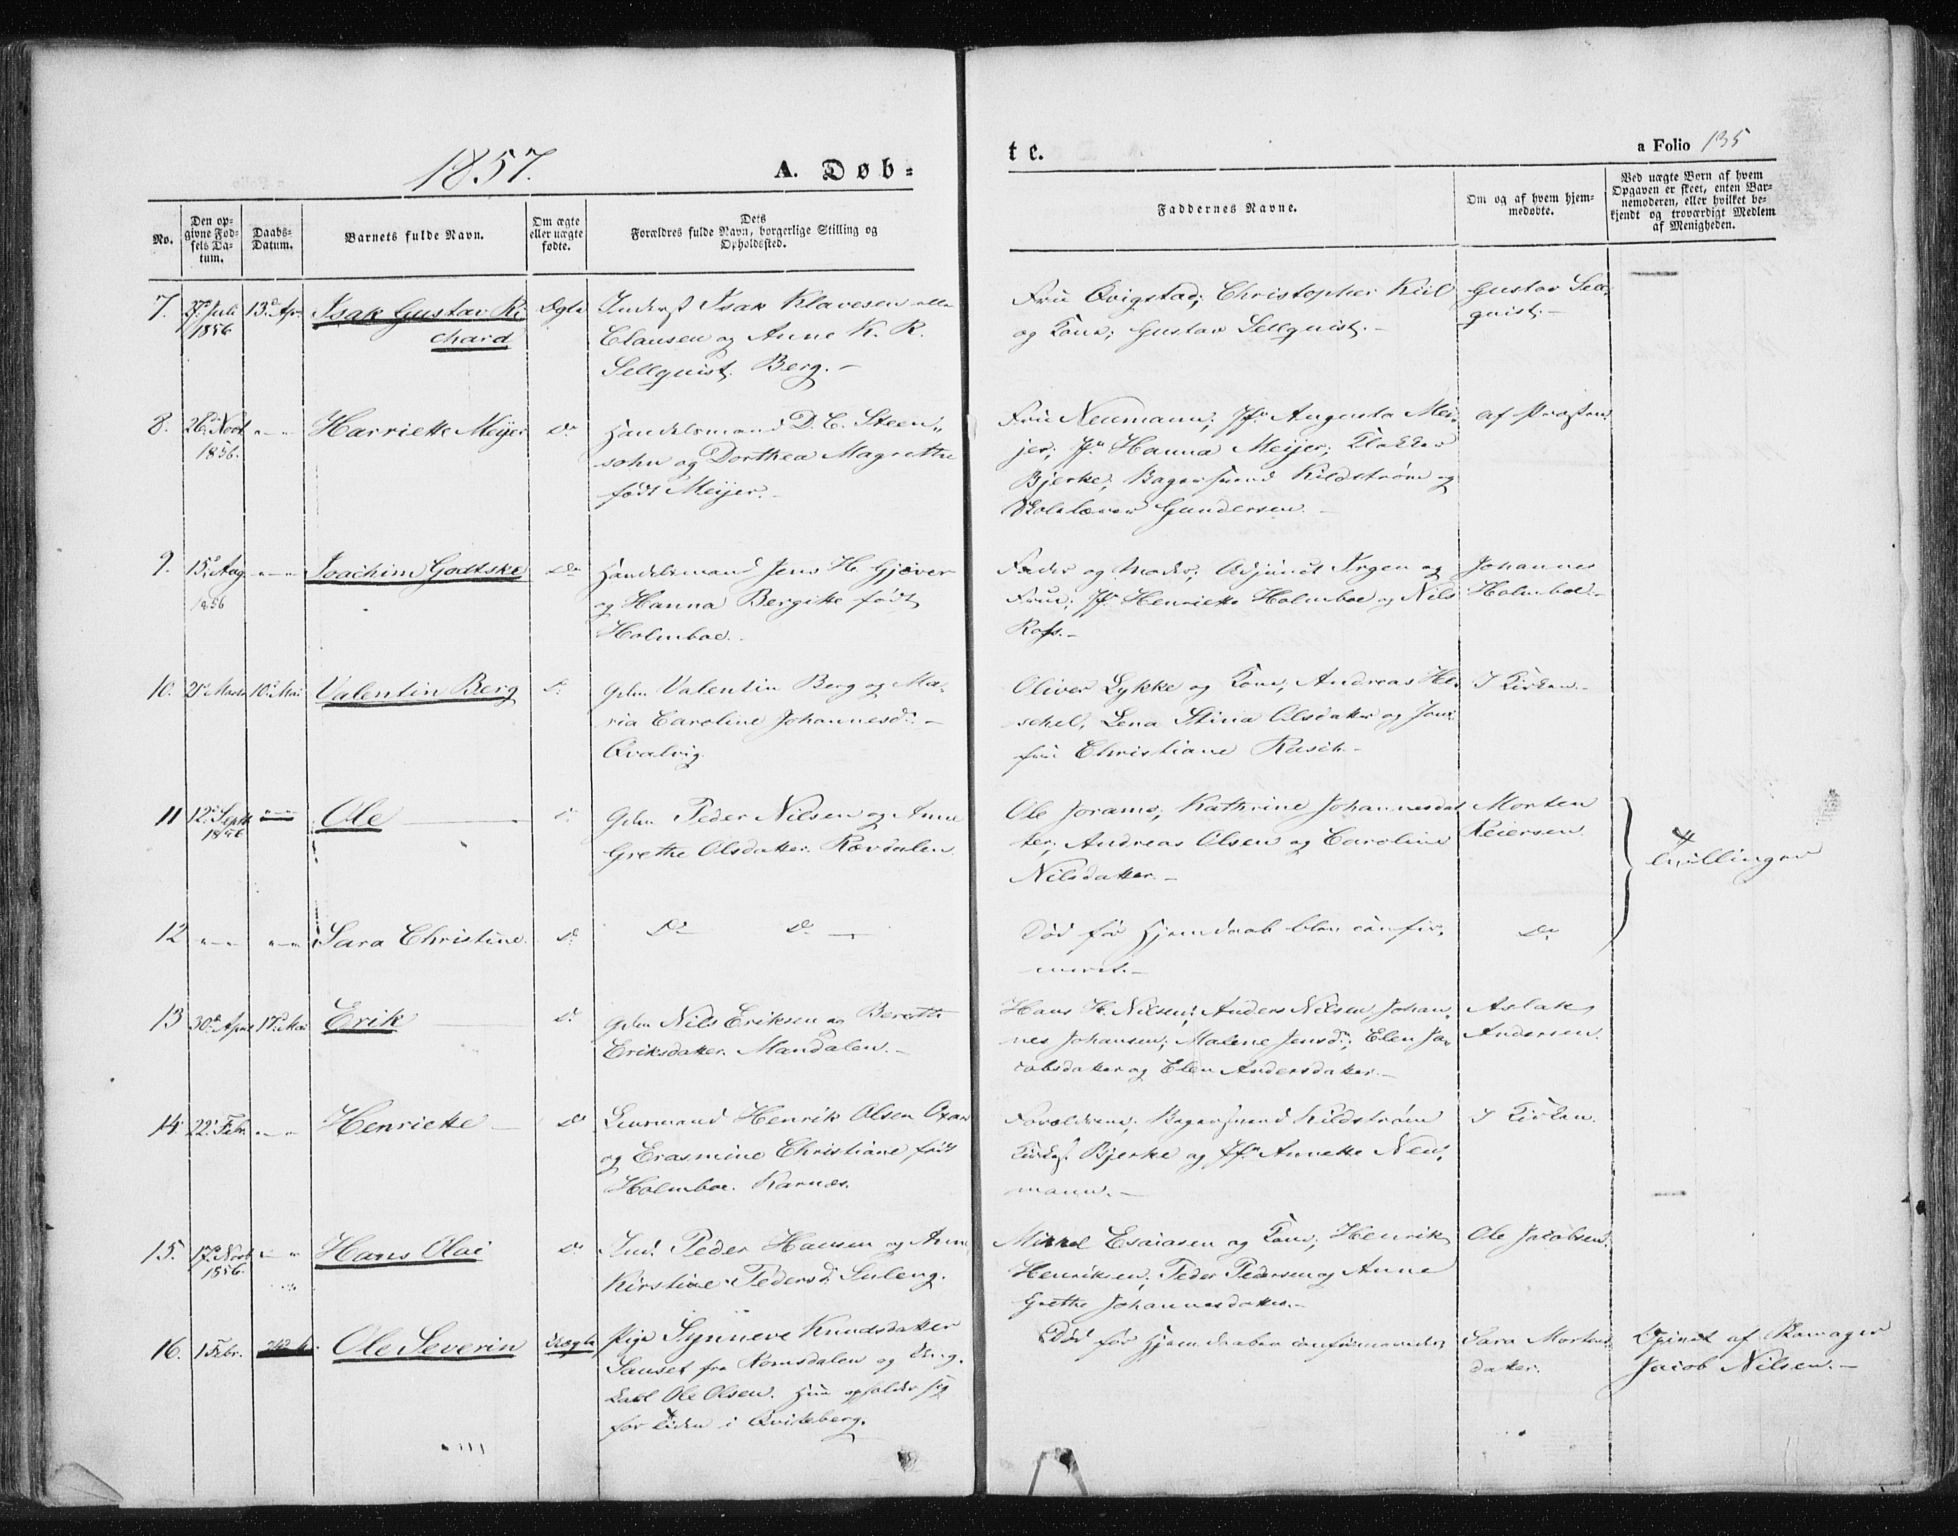 1857.
A. Døb-
te.
a Folio 135
No.
Den op-
givne Fød-
sels Da-
tum.
Daabs-
Datum.
Barnets fulde Navn.
Om ægte
eller uægte
fødte.
Dets
Forældres fulde Navn, borgerlige Stilling og
Opholdssted.
Faddernes Navne.
Om og af hvem hjem-
medøbte.
Ved uægte Børn af hvem
Opgaven er skeet, enten Bar-
nemoderen, eller hvilket be-
kjendt og troværdigt Medlem
af Menigheden.
7. Juli 1856 13de Apr. Isak Gustav Ri
chard
Ægte
Inderst Isak Klavesen eller
Clausen og Anne K. R.
Sellquist. Berg.-
Fru Qvigstad; Christopher Kiil
og Kone; Gustav Sellquist.-
Gustav Sell-
quist.-
8. 26de Novbr 1856. Harriette Meijer Do
Handelsmand D. C. Steen-
sohn og Dorthea Magrethe
født Meijer.-
Fru Neumann; Jfr. Augusta Mei-
jer; Jfr. Hanna Meijer; Klokker
Bjerke; Bagersvend Kildstrøm og
Skolelærer Gundersen.-
af Præsten.
9. 15de Aug 1856 Joachim Godtske Do
Handelsmand Jens H. Gjæver
og Hanna Bergitte født
Holmboe.-
Fader og Moder; Adjunct Irgen og
Frue; Jfr. Henriette Holmboe og Nils
Rofs.-
Johannes
Holmboe.-
10. 2de Marts 10de Mai Valentin Berg Do
Gbm. Valentin Berg og Ma-
ria Caroline Johannesd.-
Qvalvig.
Oliver Lykke og Kone, Andreas He-
schel, Lena Stina Olsdatter og Jom-
fru Christiane Rasch.-
I Kirken.-
11 12te Septb 1856 Ole Do
Gbm. Peder Nilsen og Anne
Grethe Olsdatter. Rørdalen
Ole Joramo, Kathrine Johannesdat
ter; Andreas Olsen og Caroline
Nilsdatter.-
Morten
Reiersen.
Tvillinger
12 Sara Christine. Do
Do Do
Død før Hjemdaab blev confir-
meret.-
Do
13 30te April 17de Mai Erik Do
Gbm. Nils Eriksen og Berethe
Eriksdatter. Mandalen.-
Hans H. Nilsen; Anders Nilsen, Johan-
nes Johansen; Malene Jensd; Elen Ja-
cobsdatter og Elen Andersdatter.-
Aslak
Andersen.
14. 22de Febr. Henriette Do
Leensmand Henrik Olsen Oxaas
og Erasmine Christiane født
Holmboe. Karnæs.
Forældrene; Bagersvend Kildstrøm
Bjerke og Jfr. Annette Neu-
mann.-
I Kirken.
15. 17de Novb. 1856. Hans Olai Do
Ind. Peder Hansen og Anne
Kirstine Pedersd. Sveleng.
Mikkel Esaiasen og Kone; Henrik
Henriksen; Peder Pedersen og Anne
Grethe Johannesdatter.-
Ole Jacobsen.
16. 1 Febr. Ole Severin Uægte
Pige Synneve Knudsdatter
Sanset fra Romsdalen og Ung-
karl Ole Olsen. Hun opholder sig
for tiden i Qviteberg.
Død før Hjemdaaben confirmeredes
Sara Mortens
datter.
Opgivet af Skomager
Jacob Nilsen.-